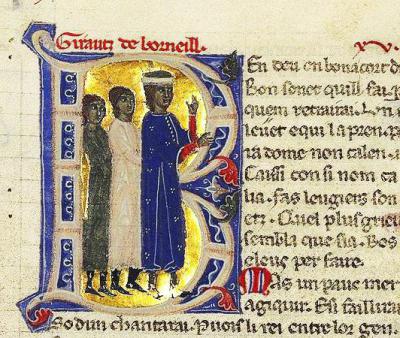 Girautz de borneill.
.xv.
En deu en bonacort de
Bon sonet quill fai. q
quem retrairai. En
leuet equi la pren. p
ua dome non talen.
Caissi con si nom ca
lia. fas leugiers son
etz. Quel plus grieu
sembla que sia. Bos
eleus per faire.
Mas un pauc mer
agiquir. Esi faillira
So dun chantarai. Puois li rei entre lor gen.